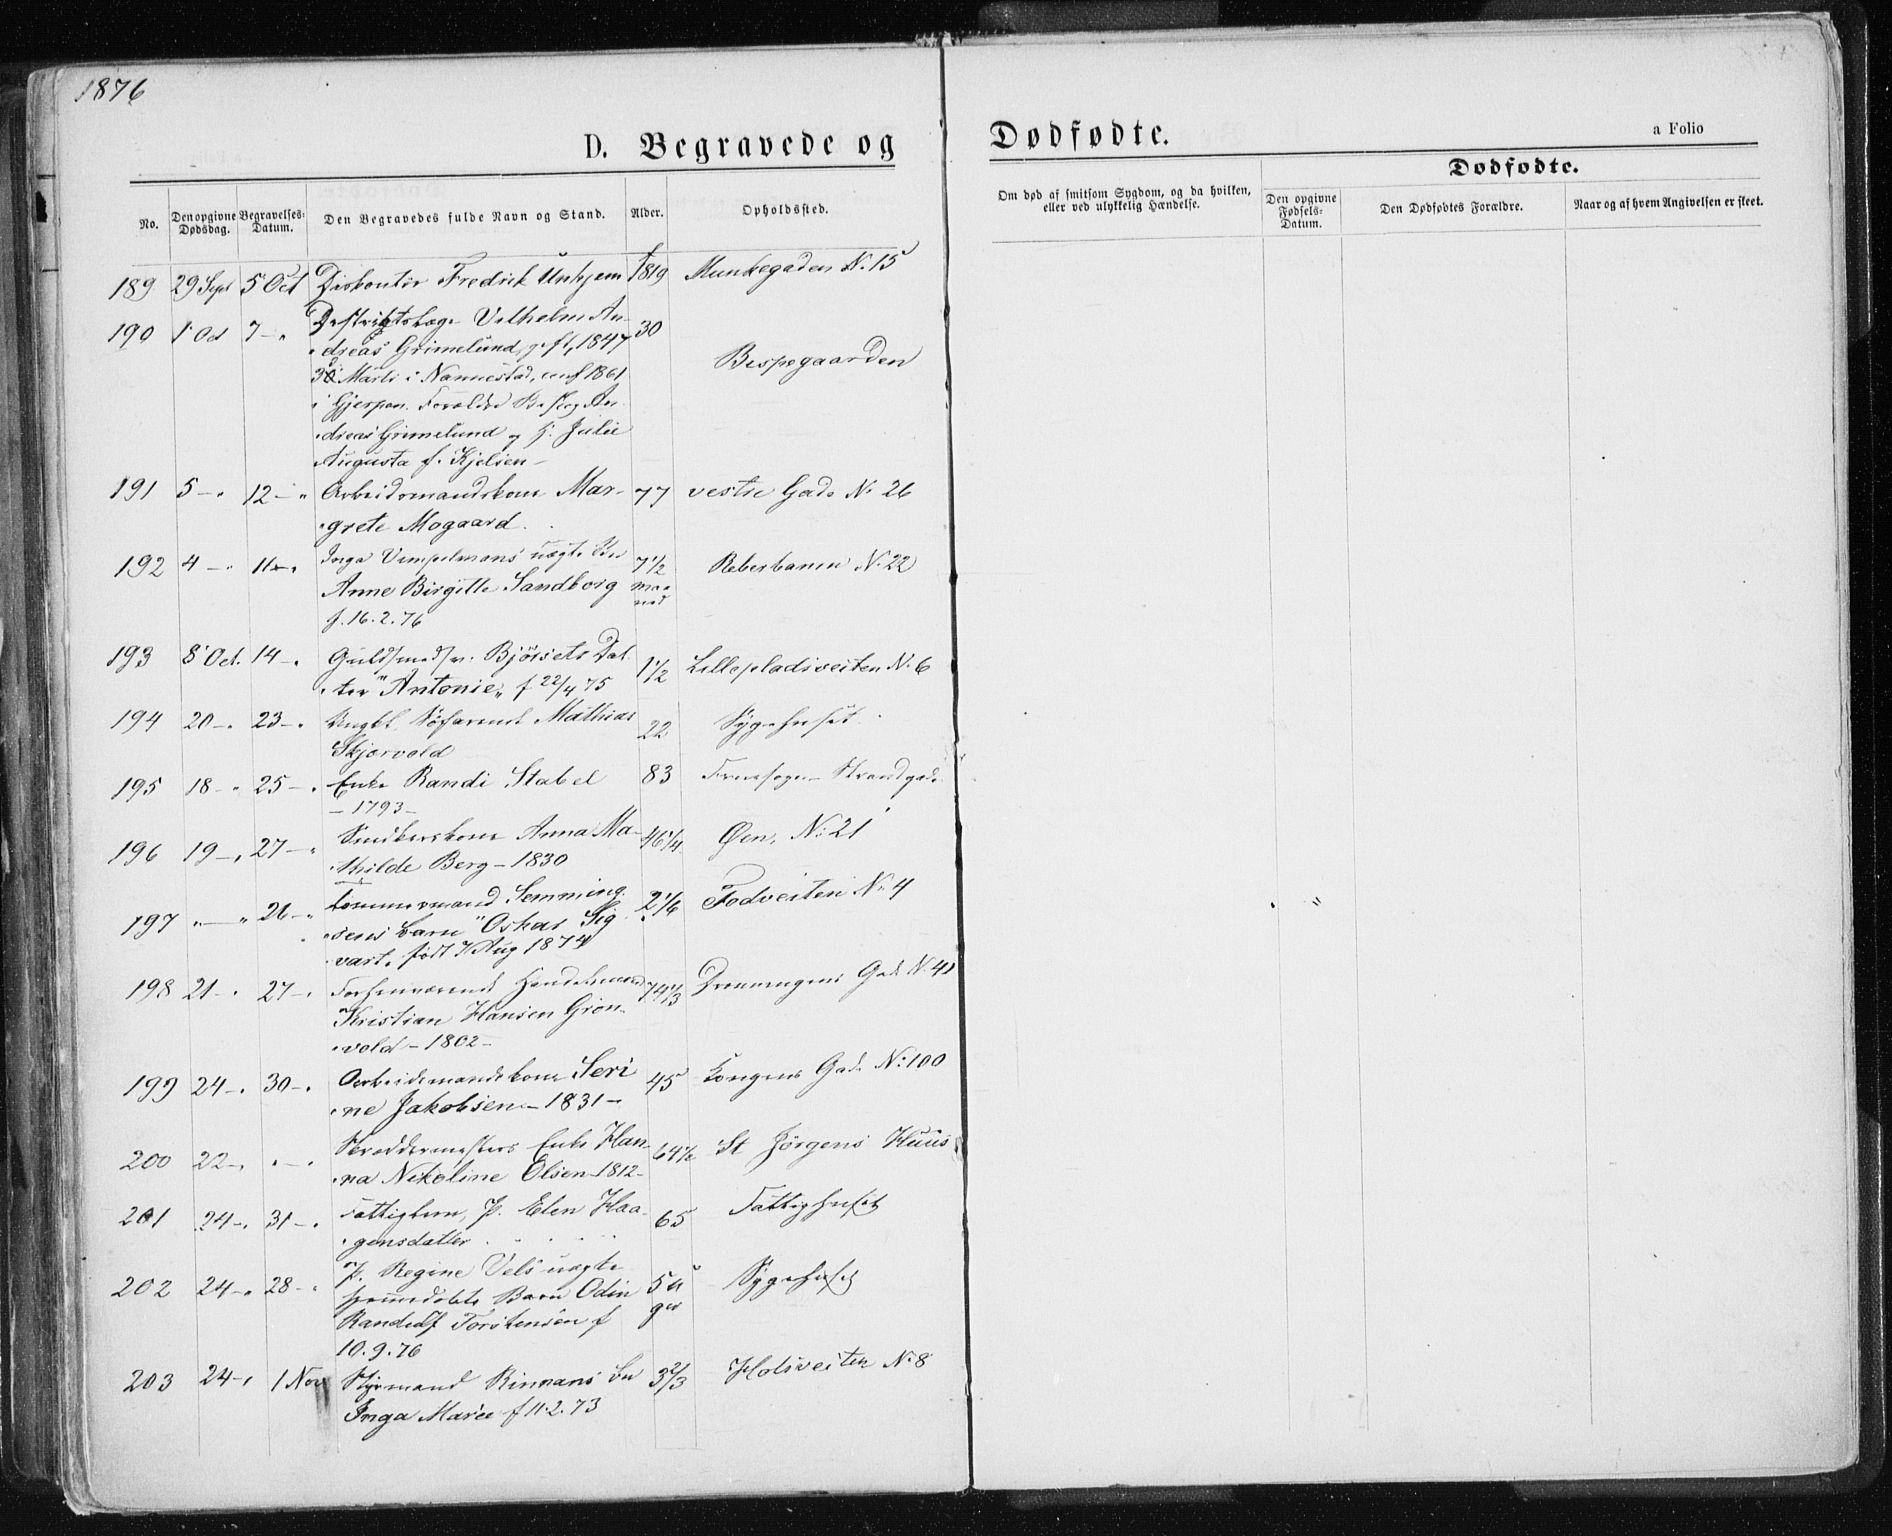 1876
D. Begravede og Dødfødte.
a Folio
No.
Den opgivne Dødsdag.
Begravelses-Datum.
Den Begravedes fulde Navn og Stand.
Alder.
Opholdssted.
Om død af smitsom Sygdom, og da hvilken, eller ved ulykkelig Hændelse.
Dødfødte.
Den opgivne Fødsels-Datum.
Den Dødfødtes Forældre.
Naar og af hvem Angivelsen er skeet.
189 29 Sept 5 Oct Diskontør Fredrik Unhjem f 1819 Munkegaden N. 15
190 1 Oct 7 – " Distriktslæge Vilhelm An- 30
dreas Grimelund, 1847
30 Marts i Nannestad, conf 1861 Bispegaarden
i Gjerpen. Forældre Biskop An-
dreas Grimelund og H. Julie
Augusta f. Kjelsen –
191 5 – " 12 – " Arbeidsmandskone Mar- 77 vestre Gade N. 26
grete Mogaard
192 4 – " 11 – " Inga Vimpelmans uægte Bn 7½ Reberbanen N. 22
Anne Birgitte Sandborg maa-
f. 16.2.76 ned
193 8 Oct. 14 – " Guldsmedsv. Bjørsets Dat- 1½ Lillepladsveiten N. 6
ter "Antonie" f 22/4 75
194 20 – " 23 – " Ungkl. Søfarende Mathias 22 Sygehuset
Skjærvold
195 18 – " 25 – " Enke Randi Stabel 83 Strandgade
– 1793 –
196 19 – " 27 – " Snedkerskone Anna Ma- 46¼ Øen, N: 21
thilde Berg – 1830
197 " – " 26 – " Tømmermand Semming- 2 1/6 Fodveiten N. 4
sens Barn "Oskar Sig-
vart, født Aug 1874
198 21 – " 27 – " Forhenværende Handelsmand 74⅓ Dronningens Gade N. 41
Kristian Hansen Grøn-
vold – 1802 –
199 24 – " 30 – " Arbeidsmandskone Seri- 45 Kongens Gade N: 100
ne Jakobsen – 1831 –
200 22 – " " – " Skreddermesters Enke Han- 64½ St Jørgens Huus
na Nikoline Olsen – 1812 –
201 24 – " 31 – " Fattiglem, P. Elen Haa- 65 Fattighuset
gensdatter
202 24 – " 28 – " P. Regine Vels uægte 5 U- Sygehuset
hjemmedøbte Barn Odin ger
Randulf Torstensen f
10.9.76
203 24 – " 1 Nov Styrmand Rinnans Bn 3⅔ Holsveiten N. 8
Inga Marie f 11.2.73